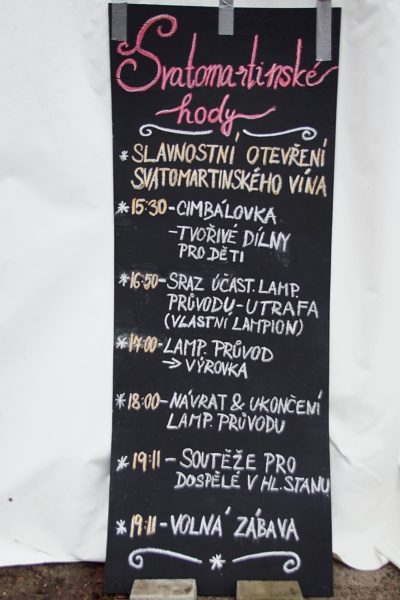 Svatomartinské
hody
* SLAVNOSTNÍ OTEVŘENÍ
SVATOMARTINSKÉHO VÍNA
* 15:30 - CIMBÁLOVKA
- TVOŘIVÉ DÍLNY
PRO DĚTI
* 16:50 - SRAZ ÚČAST. LAMP.
PRŮVODU - UTRAFA
(VLASTNÍ LAMPION)
* 17:00 - LAMP. PRŮVOD
→ VÝROVKA
* 18:00 - NÁVRAT & UKONČENÍ
LAMP. PRŮVODU
* 19:11 - SOUTĚŽE PRO
DOSPĚLÉ V HL. STANU
* 19:11 - VOLNÁ ZÁBAVA
*